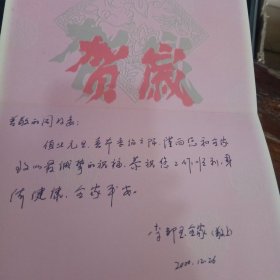 贺岁
尊敬的同志:
值此元旦、春节来临之际,谨向您和全家
致以最诚挚的祝福。恭祝您工作顺利,身
体健康,合家幸福。
李 全家(敬上)
2000.12.26